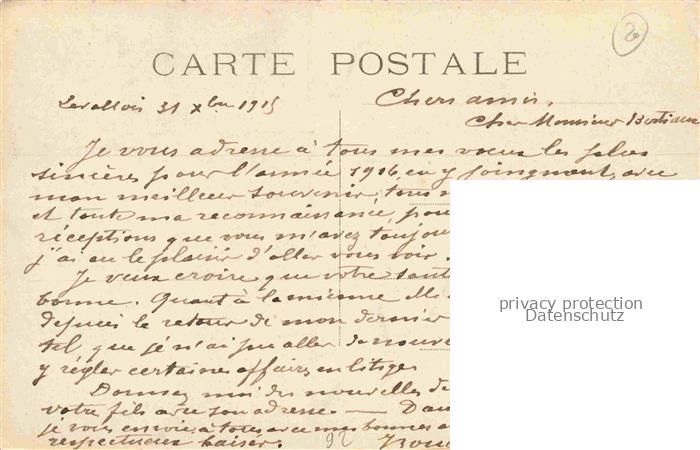 CARTE POSTALE
Levallois 31 Xbre 1915
Chers amis,
Cher Monsieur
Je vous adresse à tous mes voeux les plus
sincères pour l'année 1916, en y joignant, avec
mon meilleur souvenir, tous
et toute ma reconnaissance, pour
réceptions que vous m'avez toujou
j'ai eu le plaisir d'aller vous voir.
Je veux croire que votre sant
bonne. Quant à la mienne elle
depuis le retour de mon dernier
tel que je n'ai pu aller de nouve
y régler certaines affaires en litige
Donnez moi des nouvelles de
votre fils avec son adresse. — Dan
je vous envoie à tous avec mes bonnes a
respectueux baisers.
92
privacy protection
Datenschutz